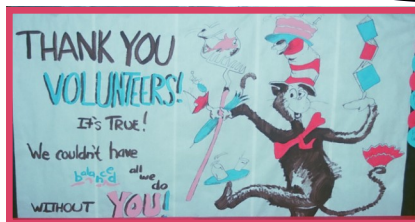 THANK YOU
VOLUNTEERS!
It's TRUE!
We couldn't have
balanced all we do
WITHOUT YOU!